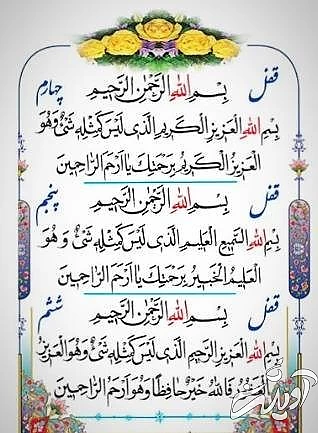 قفل چهارم
بِسْمِ اللهِ الرَّحْمٰنِ الرَّحيمِ
بِسْمِ اللهِ الْعَزيزِ الْكَريمِ الَّذى لَيْسَ كَمِثْلِهِ شَىْءٌ وَهُوَ
الْعَزيزُ الْكَريمُ بِرَحْمَتِكَ يا اَرْحَمَ الرّاحِمينَ
قفل پنجم
بِسْمِ اللهِ الرَّحْمٰنِ الرَّحيمِ
بِسْمِ اللهِ السَّميعِ الْعَليمِ الَّذى لَيْسَ كَمِثْلِهِ شَىْءٌ وَهُوَ
الْعَليمُ الْخَبيرُ بِرَحْمَتِكَ يا اَرْحَمَ الرّاحِمينَ
قفل ششم
بِسْمِ اللهِ الرَّحْمٰنِ الرَّحيمِ
بِسْمِ اللهِ الْعَزيزِ الرَّحيمِ الَّذى لَيْسَ كَمِثْلِهِ شَىْءٌ وَهُوَ الْعَزيزُ
الْغَفُورُ فَاللهُ خَيْرٌ حافِظًا وَهُوَ اَرْحَمُ الرّاحِمينَ